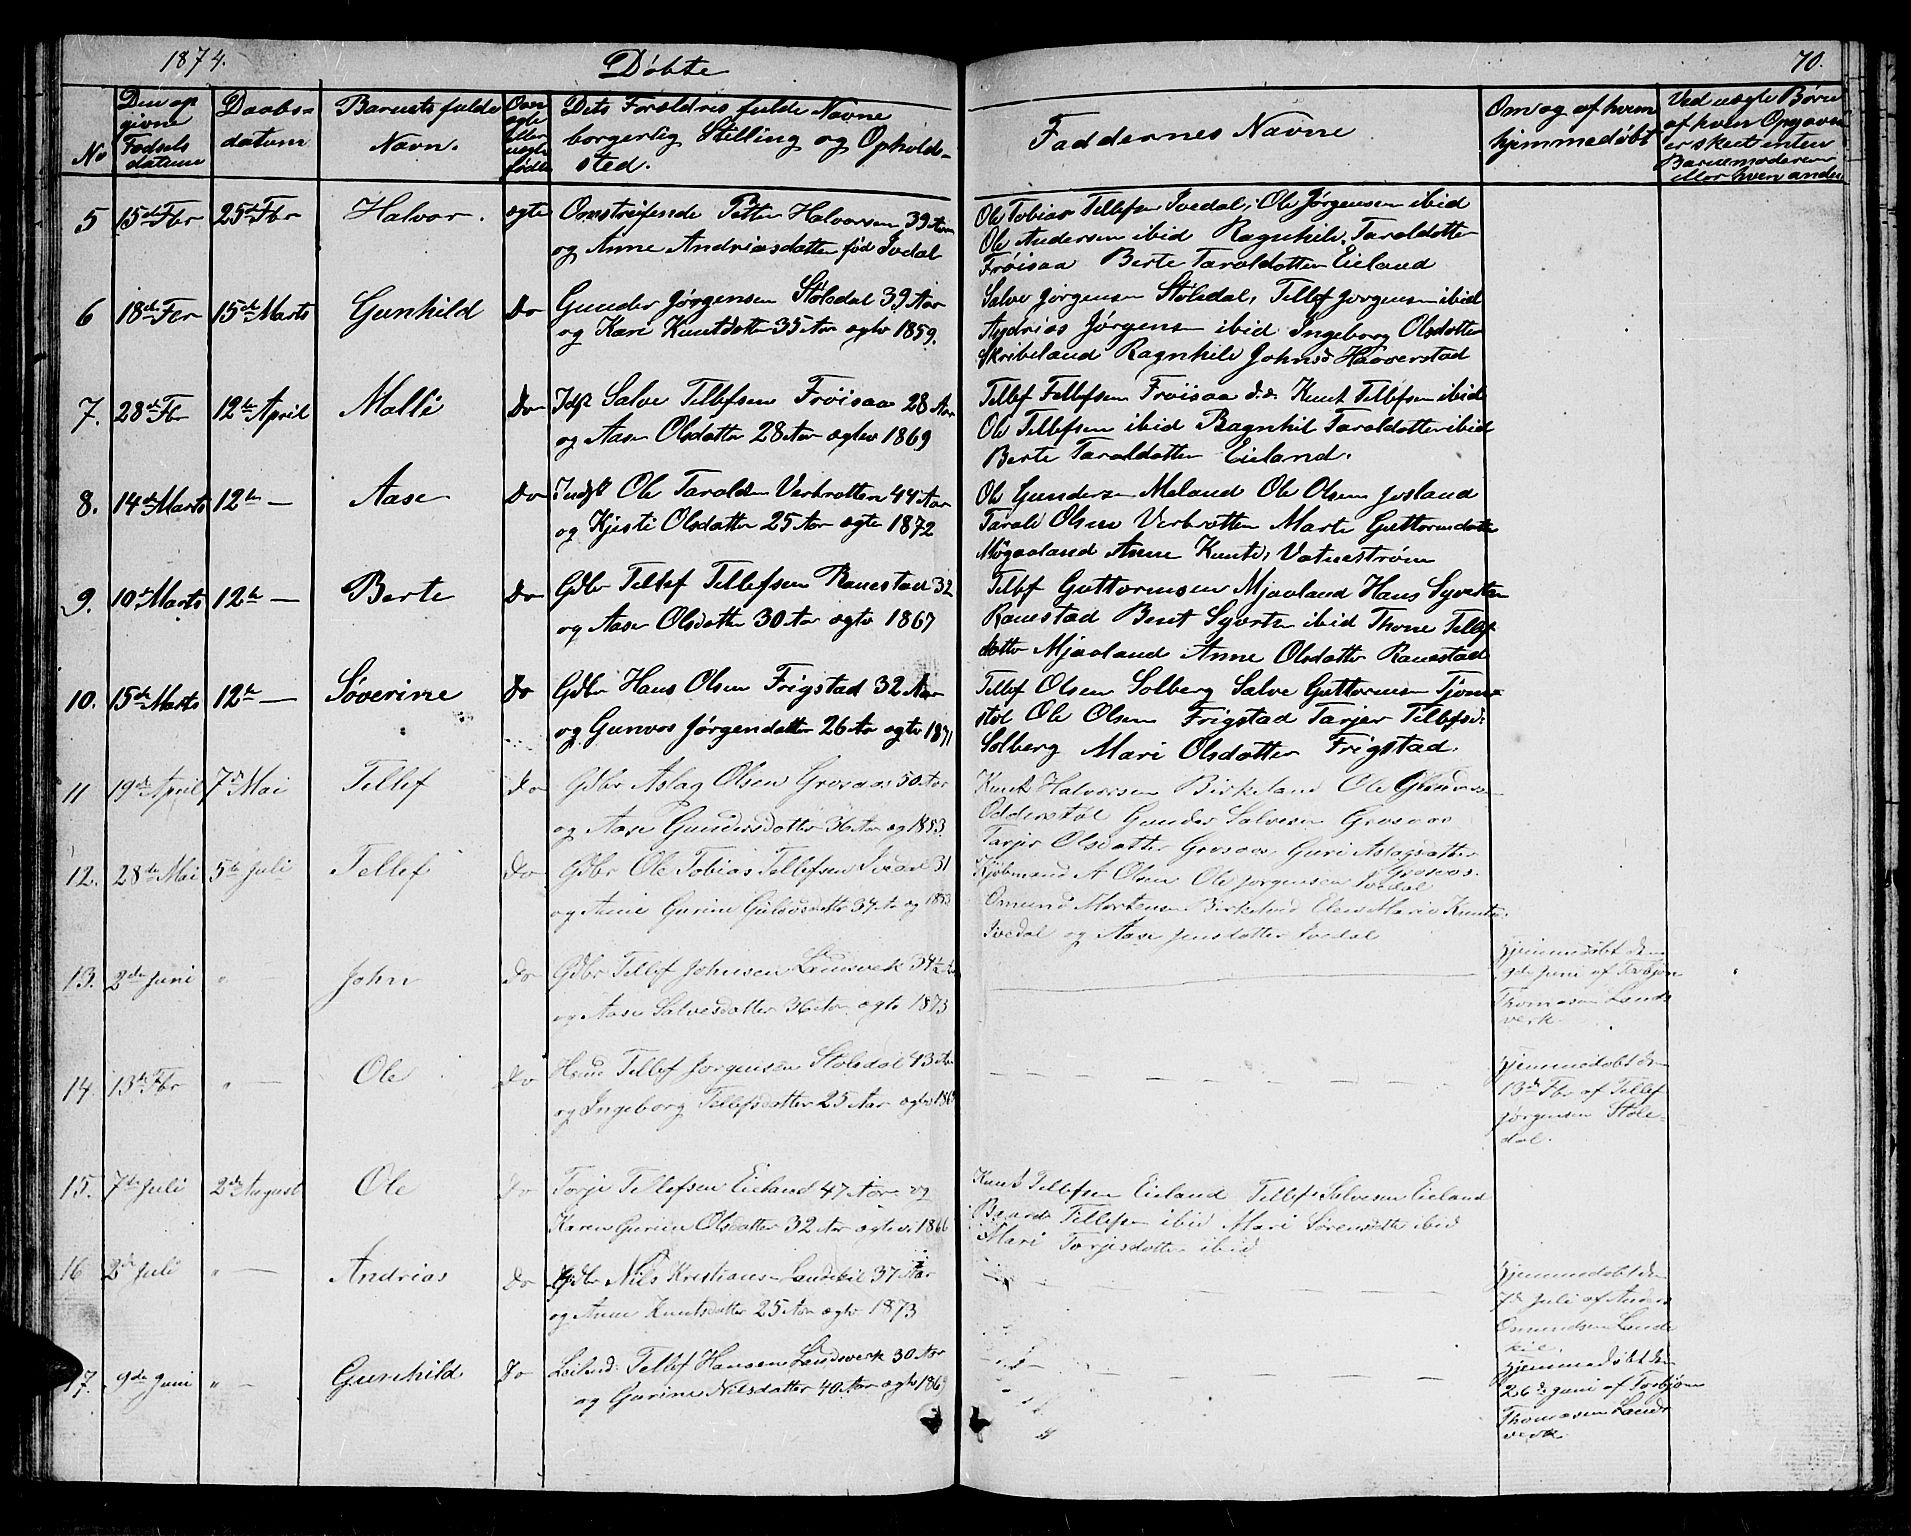 1874.
Döbte
70.
No
Den op
givne
Födsels
datum
Daabs-
datum
Barnets fulde
Navn.
Om
ægte
eller
uægte
födt
Dets Forældres fulde Navne
borgerlig Stilling og Ophold-
sted.
Faddernes Navne
Om og af hvem
hjemmedöbt
Ved uægte Börn
af hvem Opgaven
er skeet enten
Barnemoderen
eller hvem anden
5 15de Fbr 25de Fbr Halvor. ægte Omstreifende Petter Halvorsen 39 Aar
og Anne Andriasdatter fød Ivedal
Ole Tobias Tellefsen Ivedal, Ole Jørgensen ibid
Ole Andersen ibid Ragnhild Taraldotter
Frøisaa Berte Taraldotter Eieland
6 18de Fbr 15de Marts Gunhild Do Gunder Jørgensen Støledal 39 Aar
og Kari Knutsdotter 35 Aar ægtv 1859.
Salve Jørgensen Støledal, Tellef Jørgensen ibid
Andrias Jørgensen ibid Ingeborg Olsdotter
Skribeland Ragnhild Johnsd Haaverstad
7. 28de Fbr 12te April Malli Do Inds Salve Tellefsen Frøisaa 28 Aar
og Aase Olsdatter 28 Aar ægtev 1869
Tellef Tellefsen Frøisaa Knut Tellefsen ibid
Ole Tellefsen ibid Ragnhil Taraldotter ibid
Berte Taraldotter Eieland.
8. 14de Marts 12te — Aase Do Inds Ole Taralds Verbrotten 44 Aar
og Kjesti Olsdatter 25 Aar ægtv 1872
Ole Gunders Meland Ole Olsen Josland
Tarald Olsen Verbrotten Marte Guttormdotter
Anne Knuts, Vatnestrøm
9. 10de Marts 12te — Berte Do Gdbr Tellef Tellefsen Ranestad 32
og Aase Olsdatter 30 Aar ægtv 1867
Tellef Guttormsen Mjaaland Hans Syverts
Ranestad Bent Syverts ibid Thone Tellef
dotter Mjaaland Anne Olsdatter Ranestad
10. 15de Marts 12te — Søverine Do Gdbr Hans Olsen Frigstad 32 Aar
og Gunvor Jørgendatter 26 Aar ægtv 1871
Tellef Olsen Solberg Salve Guttormsen Tjom-
støl Ole Olsen Frigstad Tarjer Tellefsd:
Solberg Mari Olsdatter Frigstad.
11 19de April 7de Mai Tellef do Gdbr Aslag Olsen Grosaas 50 Aar
og Aase Gundersdatter 36 Aar og 1853.
Knut Halvorsen Birkeland Ole Gunders
Odderstøl Gunder Salvesen Grosaas
Tarjer Olsdatter Grosaas Guri Aslagsdatter
Grosaas.
12. 28de Mai 5te Juli Tellef Do Gdbr Ole Tobias Tellefsen Ivedal 31
og Anne Gurine 34 Aar og
A Olsen Ole Jørgensen Ivedal
Omund Mortensen Birkeland Elen Marie Knuts
Ivedal og Aase Jensdatter Ivedal
13. 2den Juni " John Do Gdbr Tellef Johnsen Landsverk 34½ Aar
og Aase Salvesdatter 36 Aar ægtv 1873
hjemmedöbt den
9de Juni af Torbjøn
Thomasen Lands
verk
14. 13de Fbr " — Ole Do Tellef Jørgensen Støledal 43 Aar
og Ingeborg Tellefsdatter 25 Aar ægtv
hjemmedöbt den
13de Fbr af Tellef
Jørgensen Støle-
dal.
15. 7de Juli 2de August Ole Do Torje Tellefsen Eieland 47 Aar og
Karen Gurine Olsdatter 32 Aar ægtev. 1866
Knut Tellefsen Eieland Tellef Salvesen Eieland
Tellefsen ibid Mari Sørensdtr ibid
Mari Torjesdotter ibid
16 2de Juli " — Andrias Do Gdbr Nils Kristiansen Landekil 37 Aar
og Anne Knutsdatter 25 Aar ægtv 1873
hjemmedöbt den
7de Juli af Anders
Omundsen Lande
kil.
17. 9de Juni " — Gunhild Do Leilend: Tellef Hansen Landsverk 30 Aar
og Gurine Nilsdatter 40 Aar ægtv 1869
hjemmedöbt den
26de Juni af Torbjøn
Thomasen Lands
verk